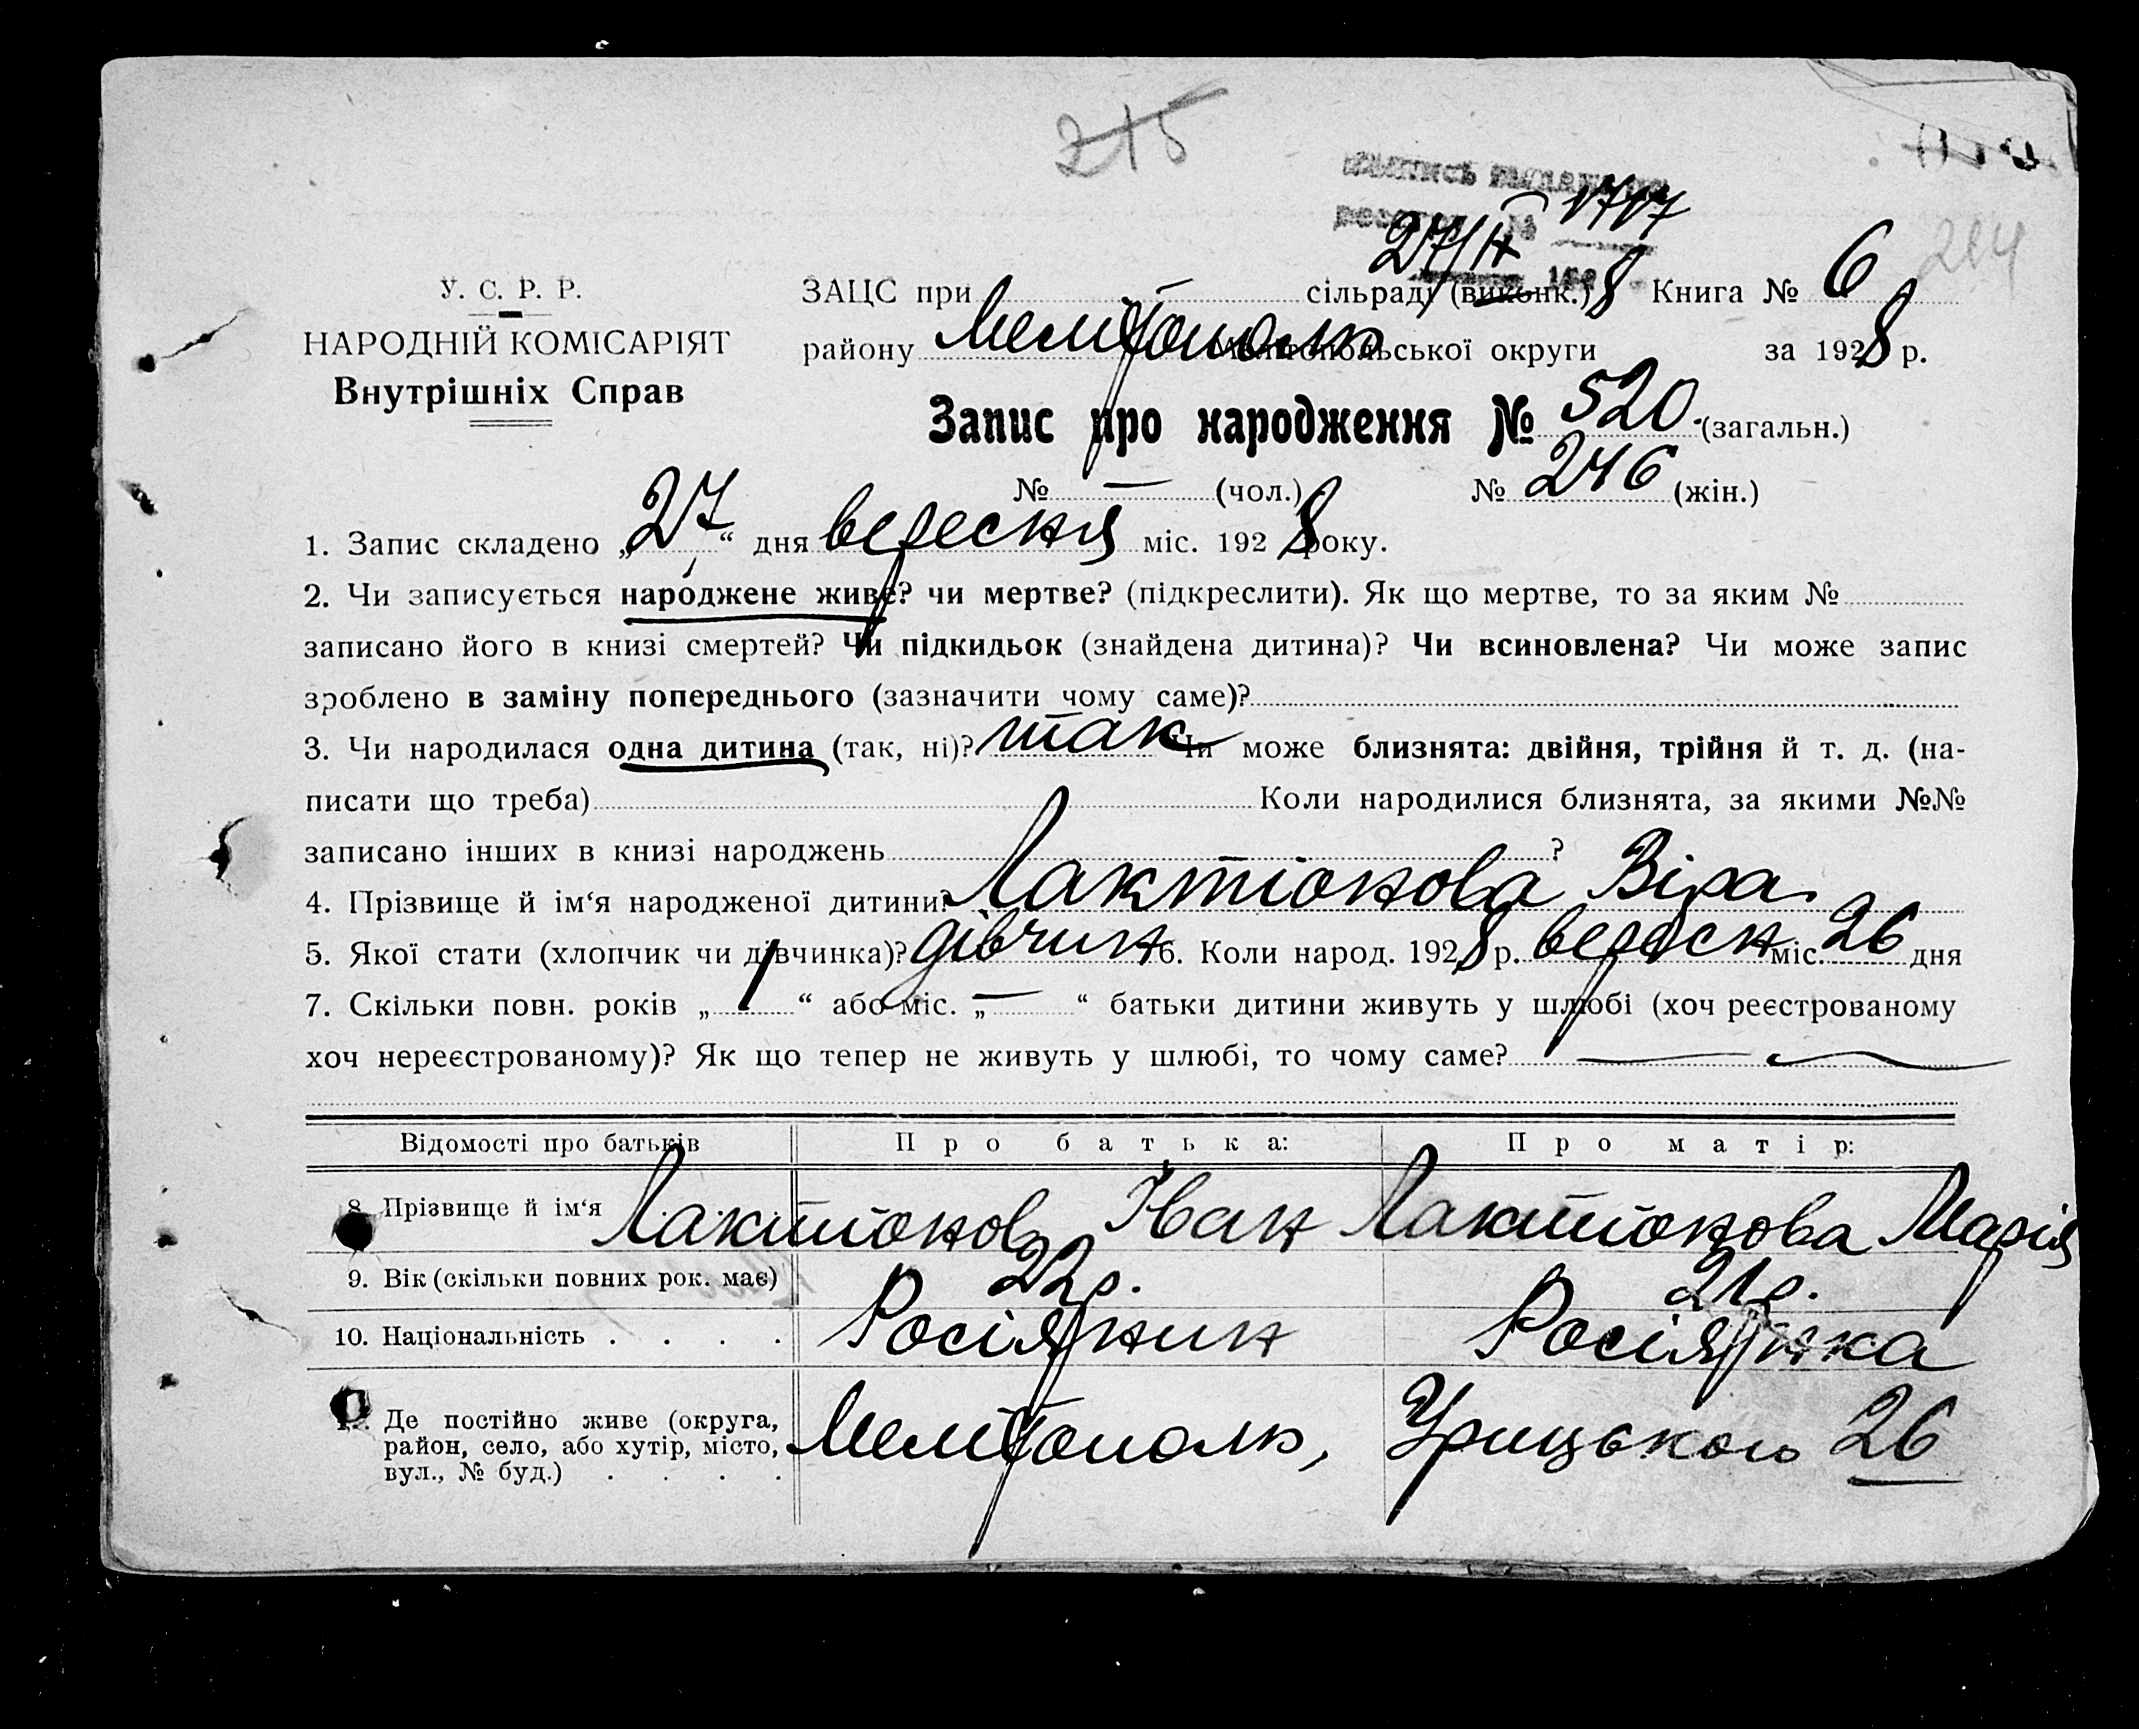 215
Выпись выдана
1717
214
27/IX 8
У. С. Р. Р.
НАРОДНІЙ КОМІСАРІЯТ
Внутрішніх Справ
ЗАЦС при сільраді (виконк.) Книга № 6
району Мелітополь Мелітопольської округи за 1928 р.
Запис про народження № 520 (загальн.)
№ — (чол.) № 246 (жін.)
1. Запис складено „27“ дня вересня міс. 1928 року.
2. Чи записується народжене живе? чи мертве? (підкреслити). Як що мертве, то за яким №
записано його в книзі смертей? Чи підкидьок (знайдена дитина)? Чи всиновлена? Чи може запис
зроблено в заміну попереднього (зазначити чому саме)?
3. Чи народилася одна дитина (так, ні)? так Чи може близнята: двійня, трійня й т. д. (на-
писати що треба) Коли народилися близнята, за якими №№
записано інших в книзі народжень ?
4. Прізвище й ім‘я народженої дитини? Лактіонова Віра
5. Якої стати (хлопчик чи дівчинка)? дівчин 6. Коли народ. 1928 р. вересн міс. 26 дня
7. Скільки повн. років „1“ або міс. „—“ батьки дитини живуть у шлюбі (хоч реєстрованому
хоч нереєстрованому)? Як що тепер не живуть у шлюбі, то чому саме? —
Відомості про батьків Про батька: Про матір:
8. Прізвище й ім‘я Лактіонов Іван Лактіонова Марія
9. Вік (скільки повних рок. має) 22р. 21р.
10. Національність . . . . Росіянин Росіянка
11. Де постійно живе (округа,
район, село, або хутір, місто, Мелітополь, Урицького 26
вул., № буд.) . . . .